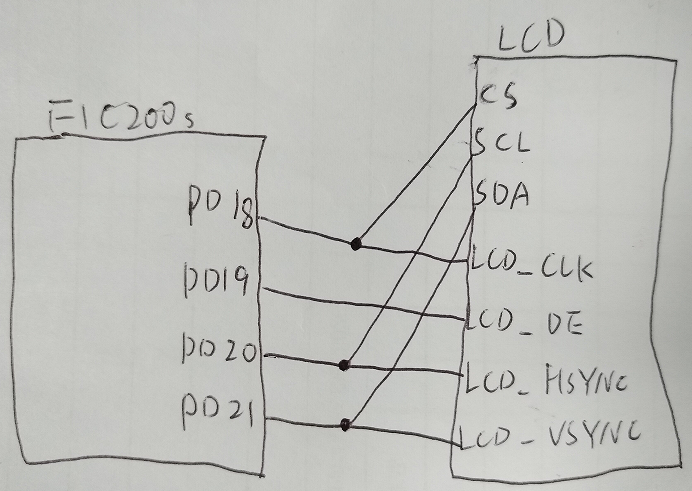 LCD
F1C200s
CS
SCL
SDA
PD18
LCD_CLK
PD19
LCD_DE
PD20
LCD_HSYNC
PD21
LCD_VSYNC